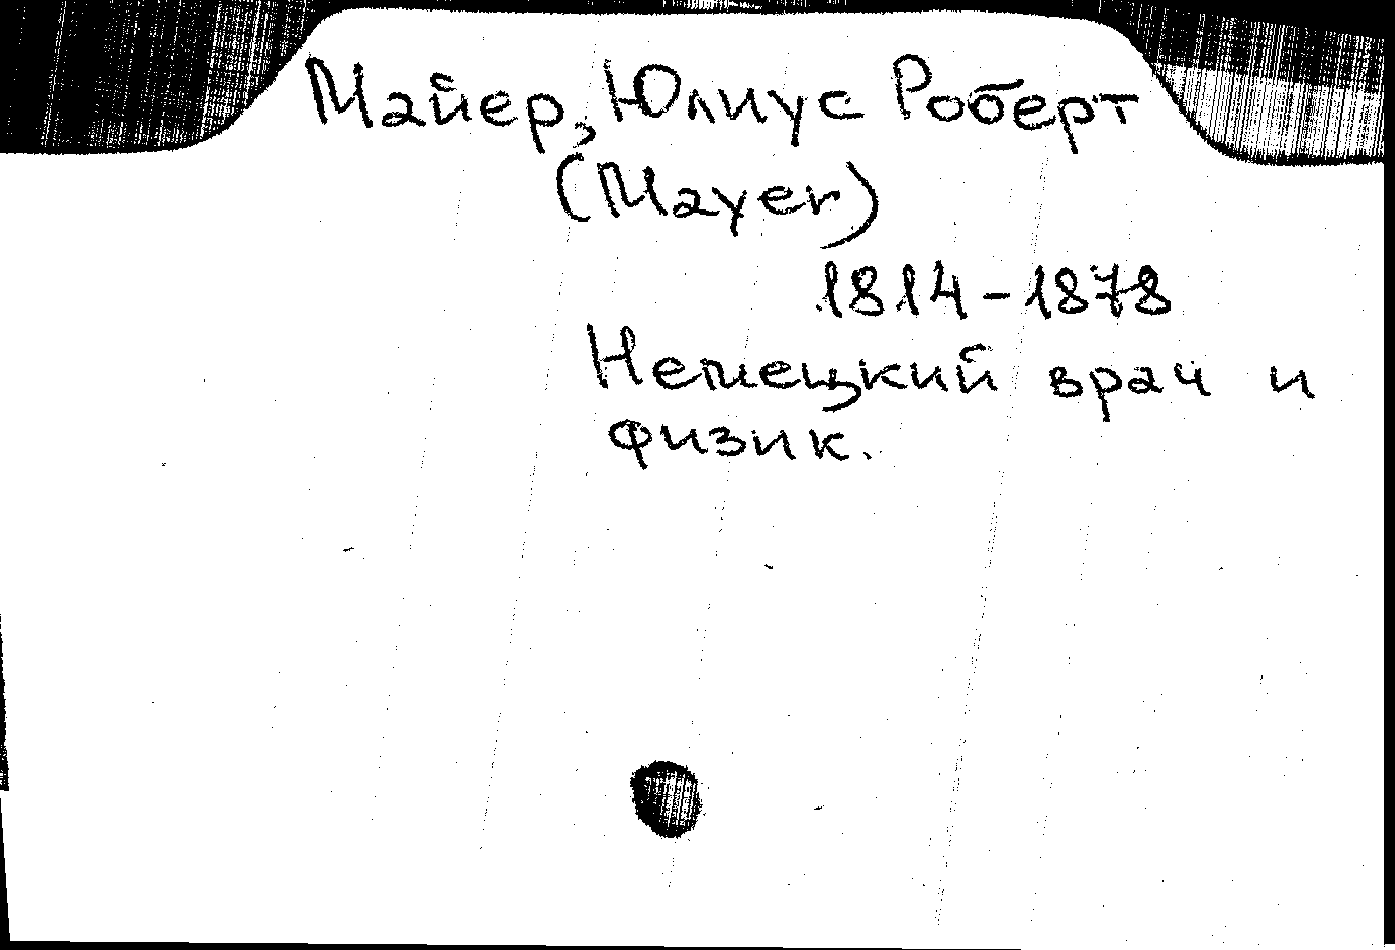 Майер, Юлиус Роберт
(Mayer)
1814-1878
Немецкий врач и
физик.